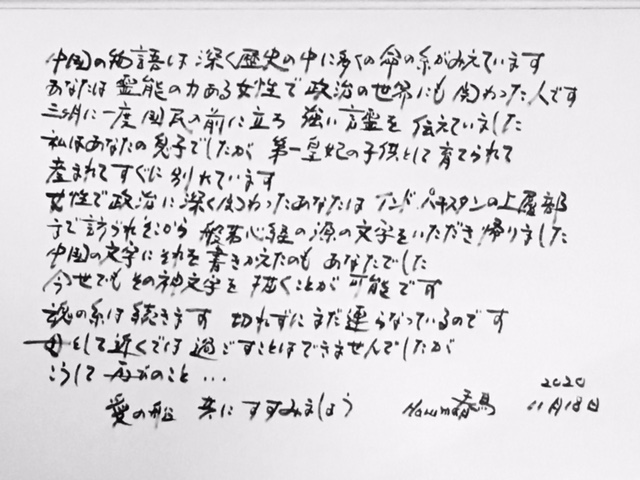 中国の物語は 深く歴史の中に多くの命の糸がみえています
あなたは 霊能の力ある女性で 政治の世界にも 関わった人です
三ヶ月に一度 国民の前に立ち 強い言霊を 伝えていました
私はあなたの息子でしたが 第一皇妃の子供として育てられて
産まれてすぐに 別れています
女性で政治に深く関わったあなたは インド パキスタンの上層部
まで訪づれそこから 般若心経の源の文字をいただき帰りました
中国の文字にそれを 書きかえたのも あなたでした
今世でも その神文字を 描くことが 可能です
魂の糸は 続きます 切れずにまだ連らなっているのです
母として近くでは 過ごすことはできませんでしたが
こうして 再びのこと...
愛の船 共に すすみましょう Haruma 春馬 2020 11月18日